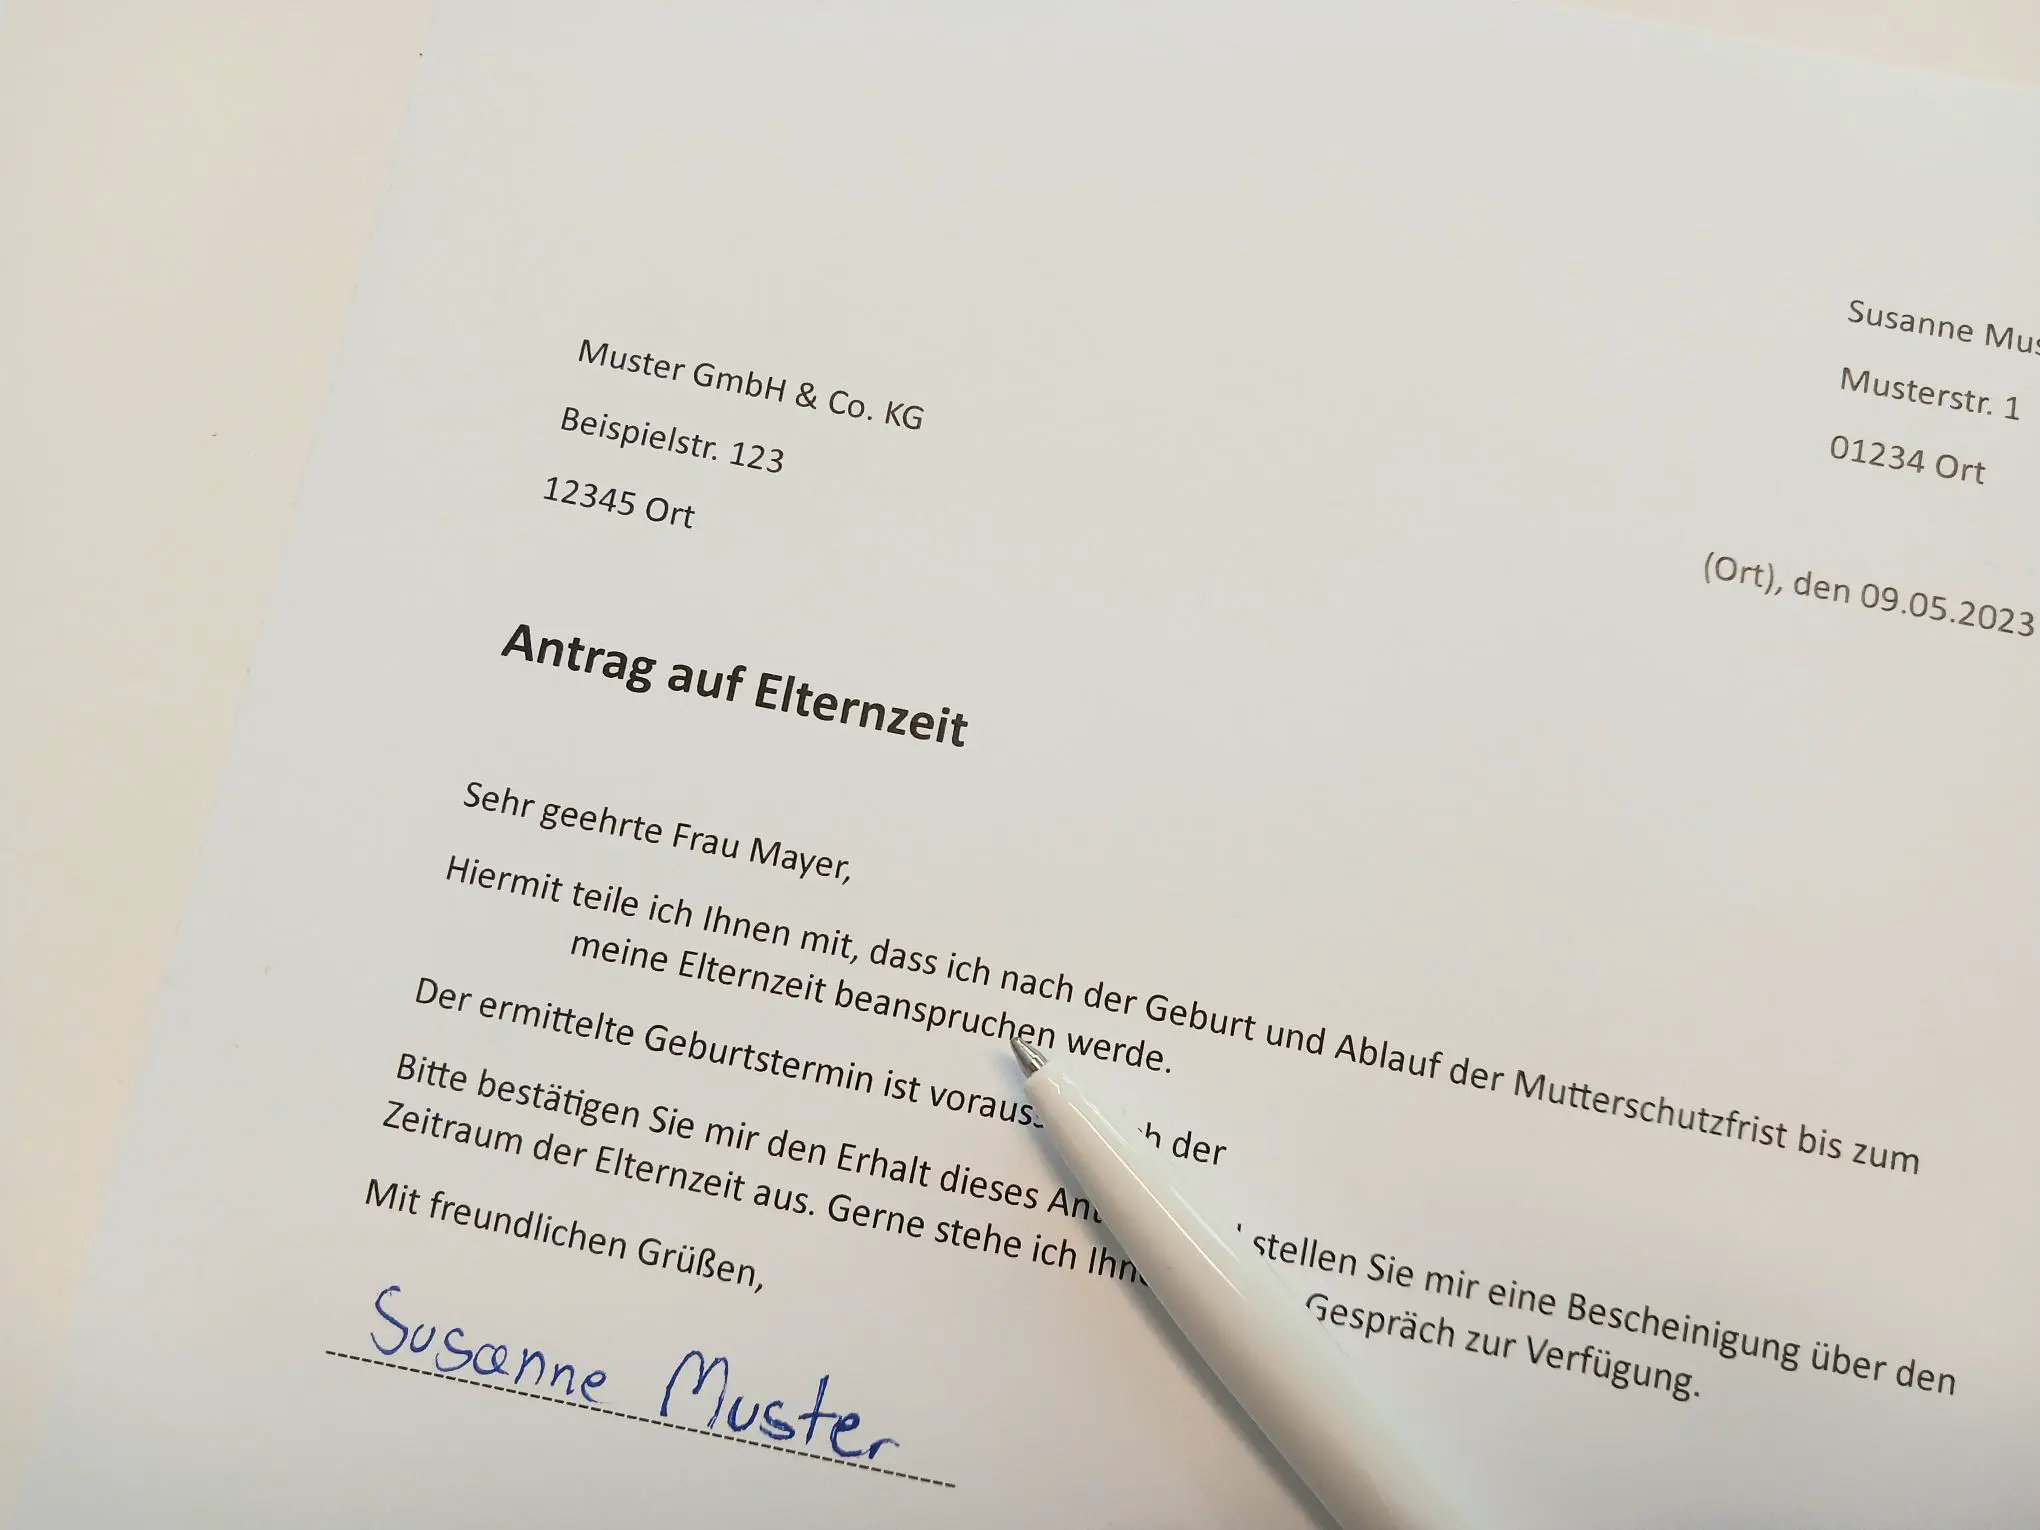 Muster GmbH & Co. KG
Beispielstr. 123
12345 Ort
Susanne
Musterstr. 1
01234 Ort
(Ort), den 09.05.2023
Antrag auf Elternzeit
Sehr geehrte Frau Mayer,
Hiermit teile ich Ihnen mit, dass ich nach der Geburt und Ablauf der Mutterschutzfrist bis zum
meine Elternzeit beanspruchen werde.
Der ermittelte Geburtstermin ist der
Bitte bestätigen Sie mir den Erhalt dieses stellen Sie mir eine Bescheinigung über den
Zeitraum der Elternzeit aus. Gerne stehe ich Gespräch zur Verfügung.
Mit freundlichen Grüßen,
Susanne Muster